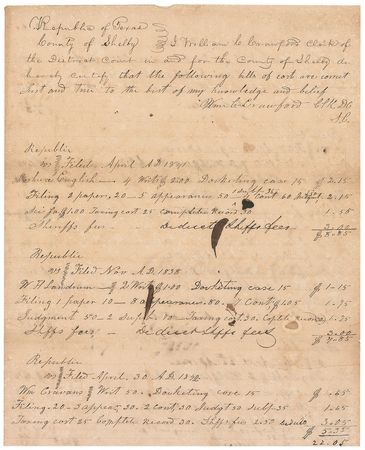 Republic of Texas
County of Shelby I William C Crawford Clerk of
the District Court in and for the County of Shelby do
hereby certify that the following bills of cost are correct
just and true to the best of my knowledge and belief
Wm C Crawford Clk DC
S.C.
Republic
vs Filed April A.D. 1841
English 4 Writs $2.00 Docketing case 15 $ 2.15
Filing 2 papers, 20 - 5 appearances 50 Cont 60 2.15
$1.00 Taxing cost 25 Complete Record 30 1.55
Sheriffs fees Deduct Shffs fees 3.00
$ 8.85
Republic
vs Filed Nov A.D. 1838
W. H. Landrum 2 Writs $1.00 Docketing case 15 $ 1-15
Filing 1 paper 10 - 8 appearances .80 - Cont, $1.05 1-95
Judgment 50 - 2 80 - Taxing cost 30. Record 1.25
Shffs fees Deduct Shffs fees 3.00
Republic
vs Filed April. 30 A.D. 1840
Wm Cravans Writ 50. Docketing case 15 $ 1.65
Filing. 20 - 3 appear, 30. 2 Cont 30 Judgt 50 Subp. 35 1.65
Taxing cost 25 Complete Record 30. Shffs fees 2.50 3.05
22.05